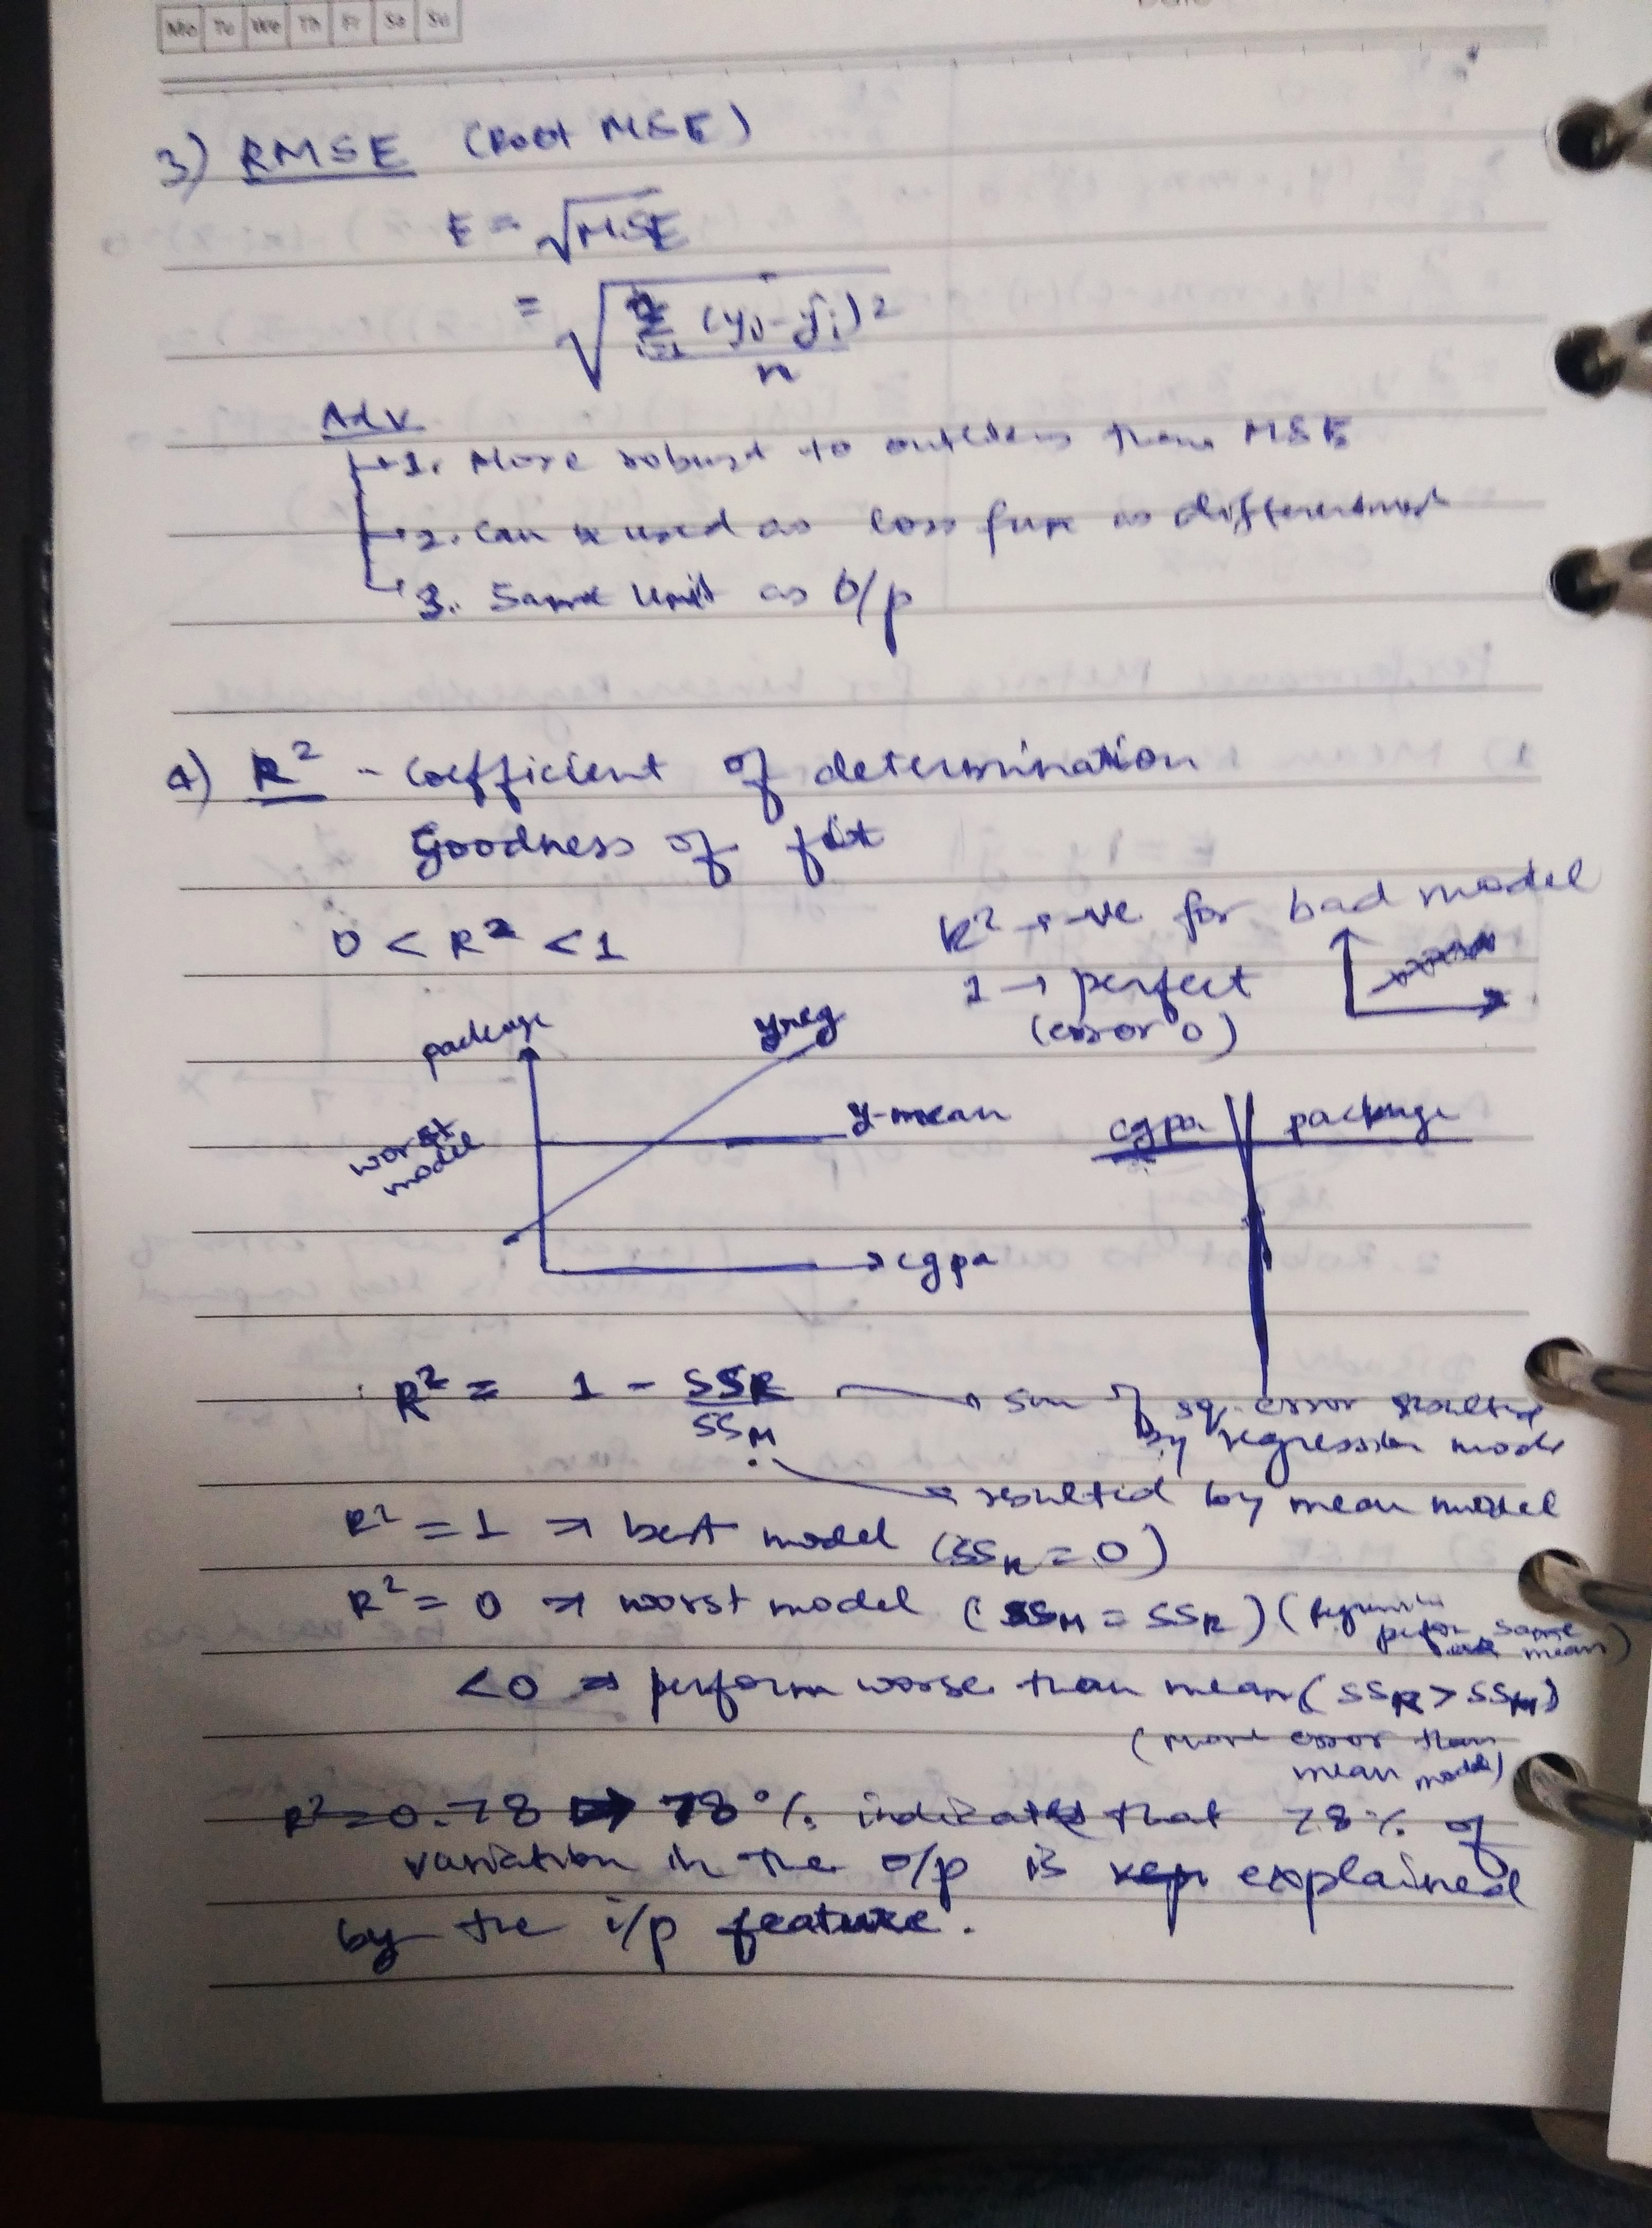 Mo Tu We Th Fr Sa Su
3) RMSE (Root MSE)
E = √MSE
= √ n Σ i=1 (yi - ŷi)2 / n
Adv
1. More robust to outliers than MSE
2. Can be used as loss func as
3. Same Unit as O/p
4) R2 - Coefficient of determination
Goodness of fit
0 < R2 < 1
R2 → -ve for bad model
1 → perfect
(error 0)
package
yreg
worst
model
y-mean
cgpa
cgpa package
R2 = 1 - SSR / SSM
→ sum of sq. error resulted
by regression mode
→ resulted by mean model
R2 = 1 ⇒ best model (SSR = 0)
R2 = 0 ⇒ worst model (SSM = SSR) ( same mean)
<0 ⇒ perform worse than mean (SSR > SSM)
(more error than
mean model)
R2=0.78 ⇒ 78% indicates that 78% of
variation in the o/p is explained
by the i/p feature.